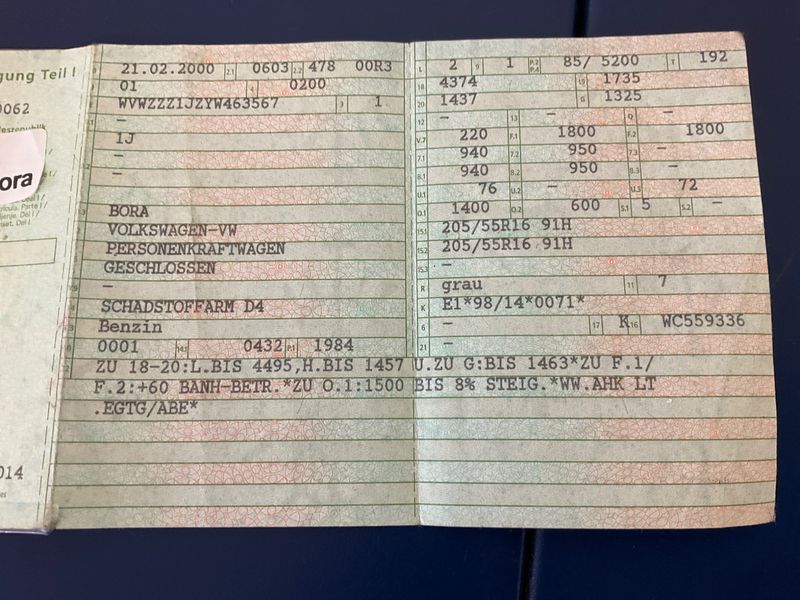 gung Teil I
0062
ora
014
21.02.2000 2.1 0603 2.2 478 00R3
01 4 0200
WVWZZZ1JZYW463567 3 1
–
1J
–
–
BORA
VOLKSWAGEN-VW
PERSONENKRAFTWAGEN
GESCHLOSSEN
–
SCHADSTOFFARM D4
Benzin
0001 14.1 0432 P.1 1984
L 2 9 1 P.2 P.4 85/ 5200 T 192
18 4374 19 1735
20 1437 G 1325
12 – 13 – Q –
V.7 220 F.1 1800 F.2 1800
7.1 940 7.2 950 7.3 –
8.1 940 8.2 950 8.3 –
U.1 76 U.2 – U.3 72
O.1 1400 O.2 600 S.1 5 S.2 –
15.1 205/55R16 91H
15.2 205/55R16 91H
15.3 –
R grau 11 7
K E1*98/14*0071*
6 – 17 K 16 WC559336
21 –
ZU 18-20:L.BIS 4495,H.BIS 1457 U.ZU G:BIS 1463*ZU F.1/
F.2:+60 BANH-BETR.*ZU O.1:1500 BIS 8% STEIG.*WW.AHK LT
.EGTG/ABE*